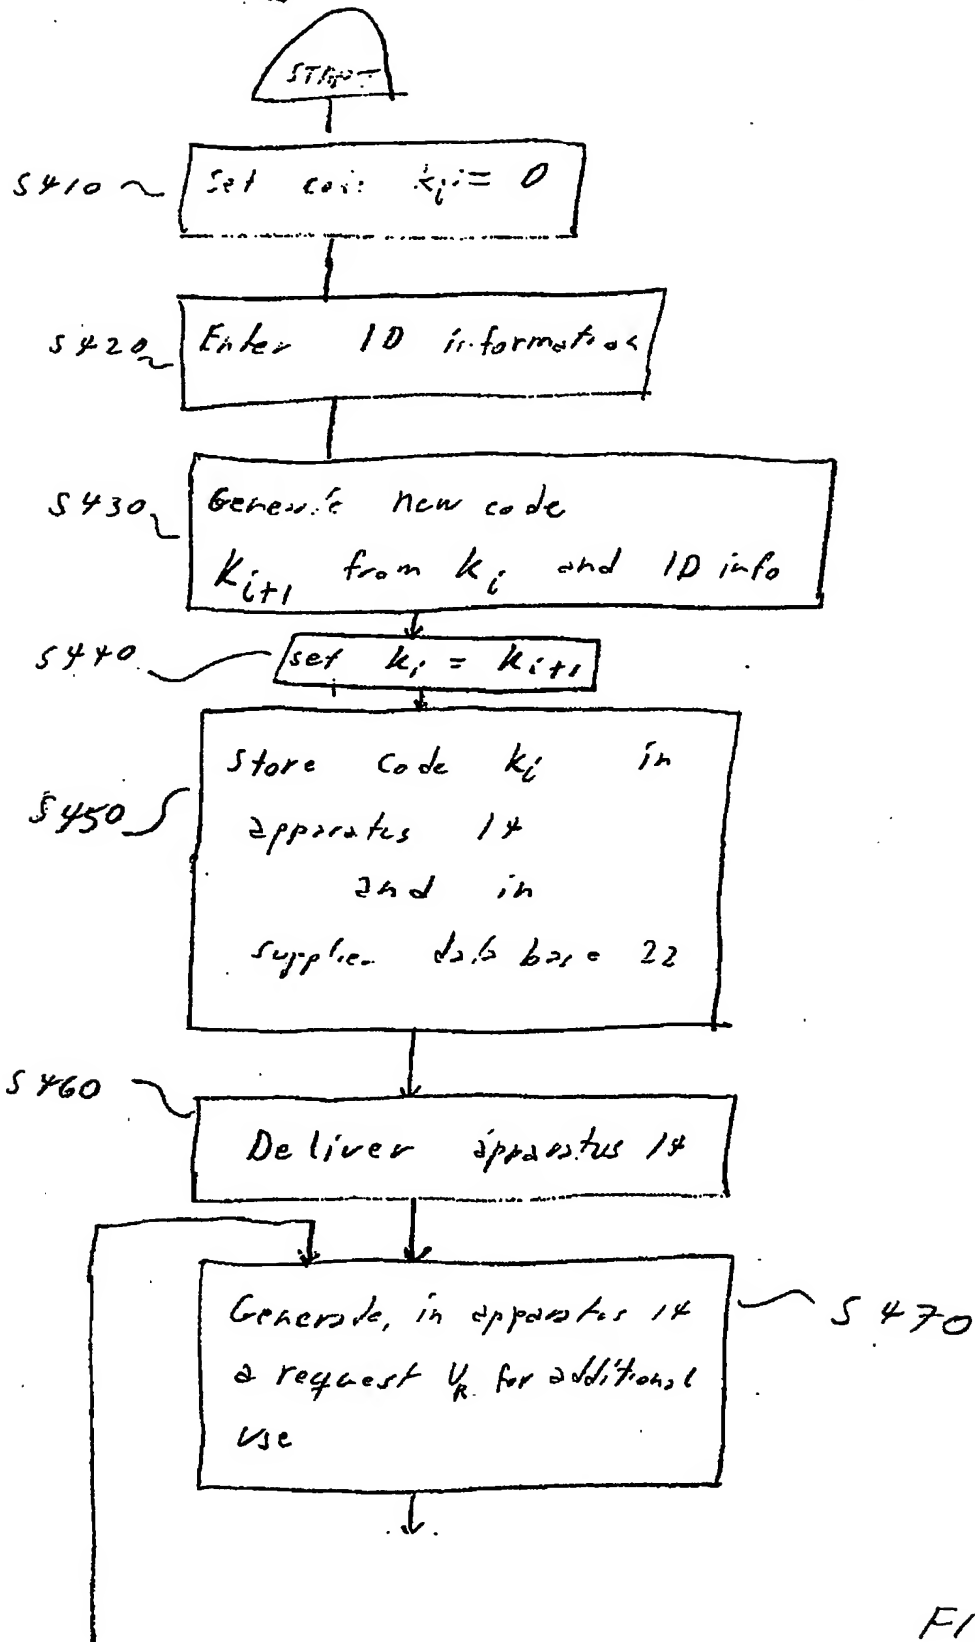 START
S410 Set k_i = 0
S420 Enter ID information
S430 Generate new code
K_{i+1} from K_i and ID info
S440 set k_i = k_{i+1}
Store code k_i in
S450 apparatus 14
and in
supplier data base 22
S460
Deliver apparatus 14
Generate, in apparatus 14 S470
a request U_R for additional
use